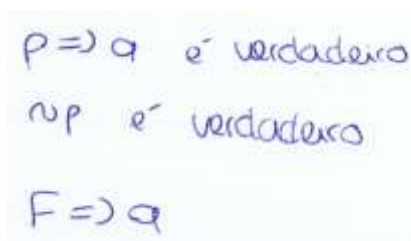 p => q é verdadeiro
~p é verdadeiro
F => q